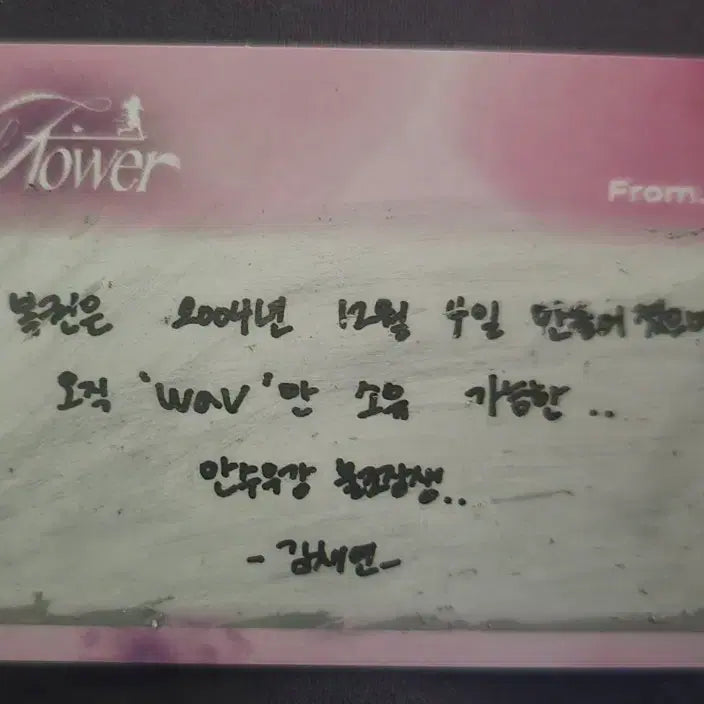 Flower
From.
복권은 2004년 12월 4일 만들어졌으며
오직 'wav'만 소유 가능한..
만수무강 불로장생..
- 김채연 -